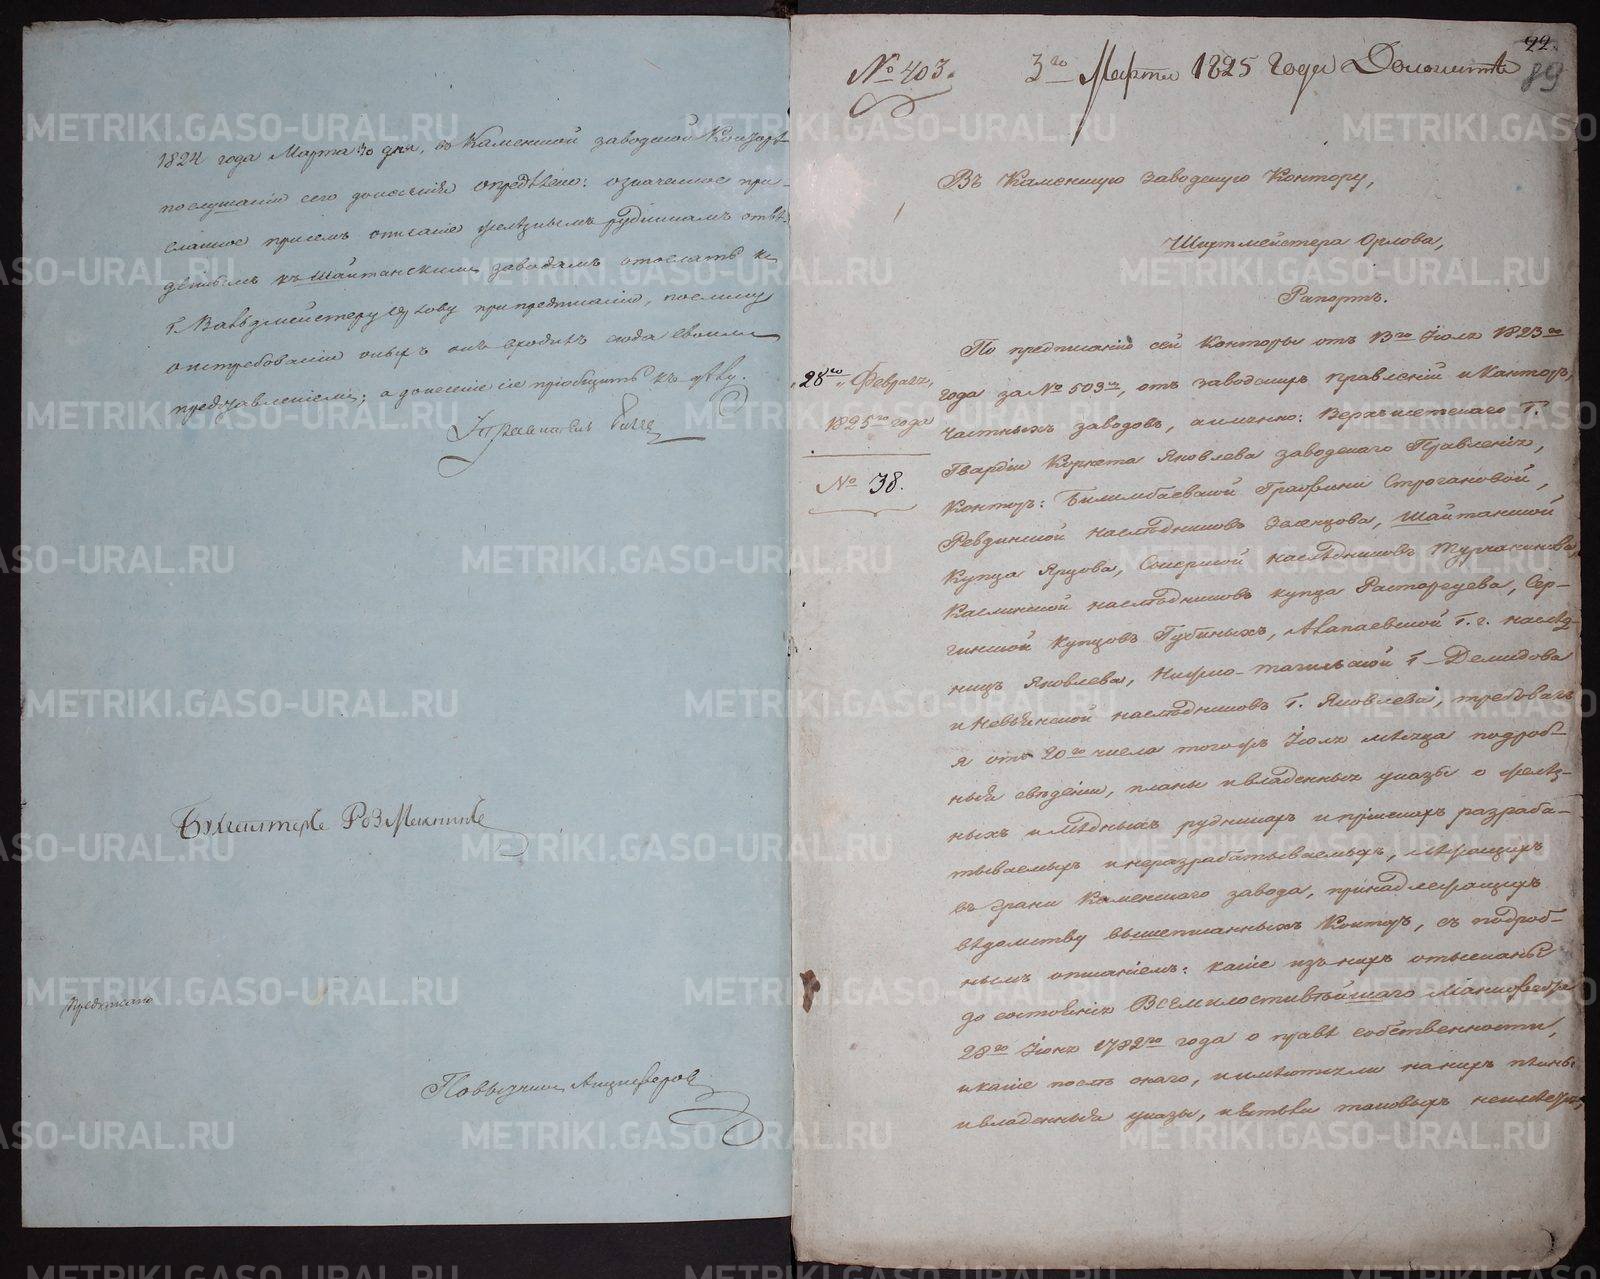 1824 года Марта 30 дня, въ Каменской заводской Конторѣ
по слушаніи сего донесенія опредѣлено: означенное при-
сланное при семъ описаніе желѣзнымъ рудникамъ отвѣ
деннымъ къ Шайтанскимъ заводамъ отослать къ
при предписаніи, поелику
о истребованіи оныхъ онъ входилъ сюда своимъ
представленіемъ; а донесеніе сіе пріобщить къ дѣлу.
Бухгалтеръ
Предписано
Повытчикъ Анциферовъ
22.
89
№ 403.
3го Марта 1825 года Доложить
Въ Каменскую Заводскую Контору,
Шихтмейстера Орлова,
Рапортъ.
28го Февраля,
1825го года
№ 38.
По предписанію сей Конторы отъ 13го Іюля 1823го
года за № 509м, отъ заводскихъ правленій и Конторъ,
частныхъ заводовъ, а именно: Верхъисетскаго Г.
Гвардіи Корнета Яковлева заводскаго Правленія,
Конторъ: Билимбаевской Графини Строгановой,
Ревдинской наслѣдниковъ Зеленцова, Шайтанской
Купца Ярцова, Сысерской наслѣдниковъ Турчанинова,
Каслинской наслѣдниковъ купца Расторгуева, Сер-
гинской Купцовъ Губиныхъ, Алапаевской Г. г. наслѣд-
ницъ Яковлева, Нижно-тагильской Г. Демидова
и Невьянской наслѣдниковъ Г. Яковлева, требовалъ
я отъ 20го числа тогожъ Іюля мѣсяца подроб-
ныя свѣденія, планы и владенныя указы о желѣз-
ныхъ и мѣдныхъ рудникахъ и пріискахъ разраба-
тываемыхъ и неразрабатываемыхъ, лежащихъ
въ грани Каменскаго завода, принадлежащихъ
вѣдомству вышеписанныхъ Конторъ, съ подроб-
нымъ описаніемъ: какіе изъ нихъ отысканы
до состоянія Всемилостивѣйшаго Манифеста
28го Іюня 1782го года о правѣ собственности,
и какіе послѣ онаго, и имѣютъ ли на нихъ планы
и владенныя указы, и естьли таковыхъ неимѣютъ,